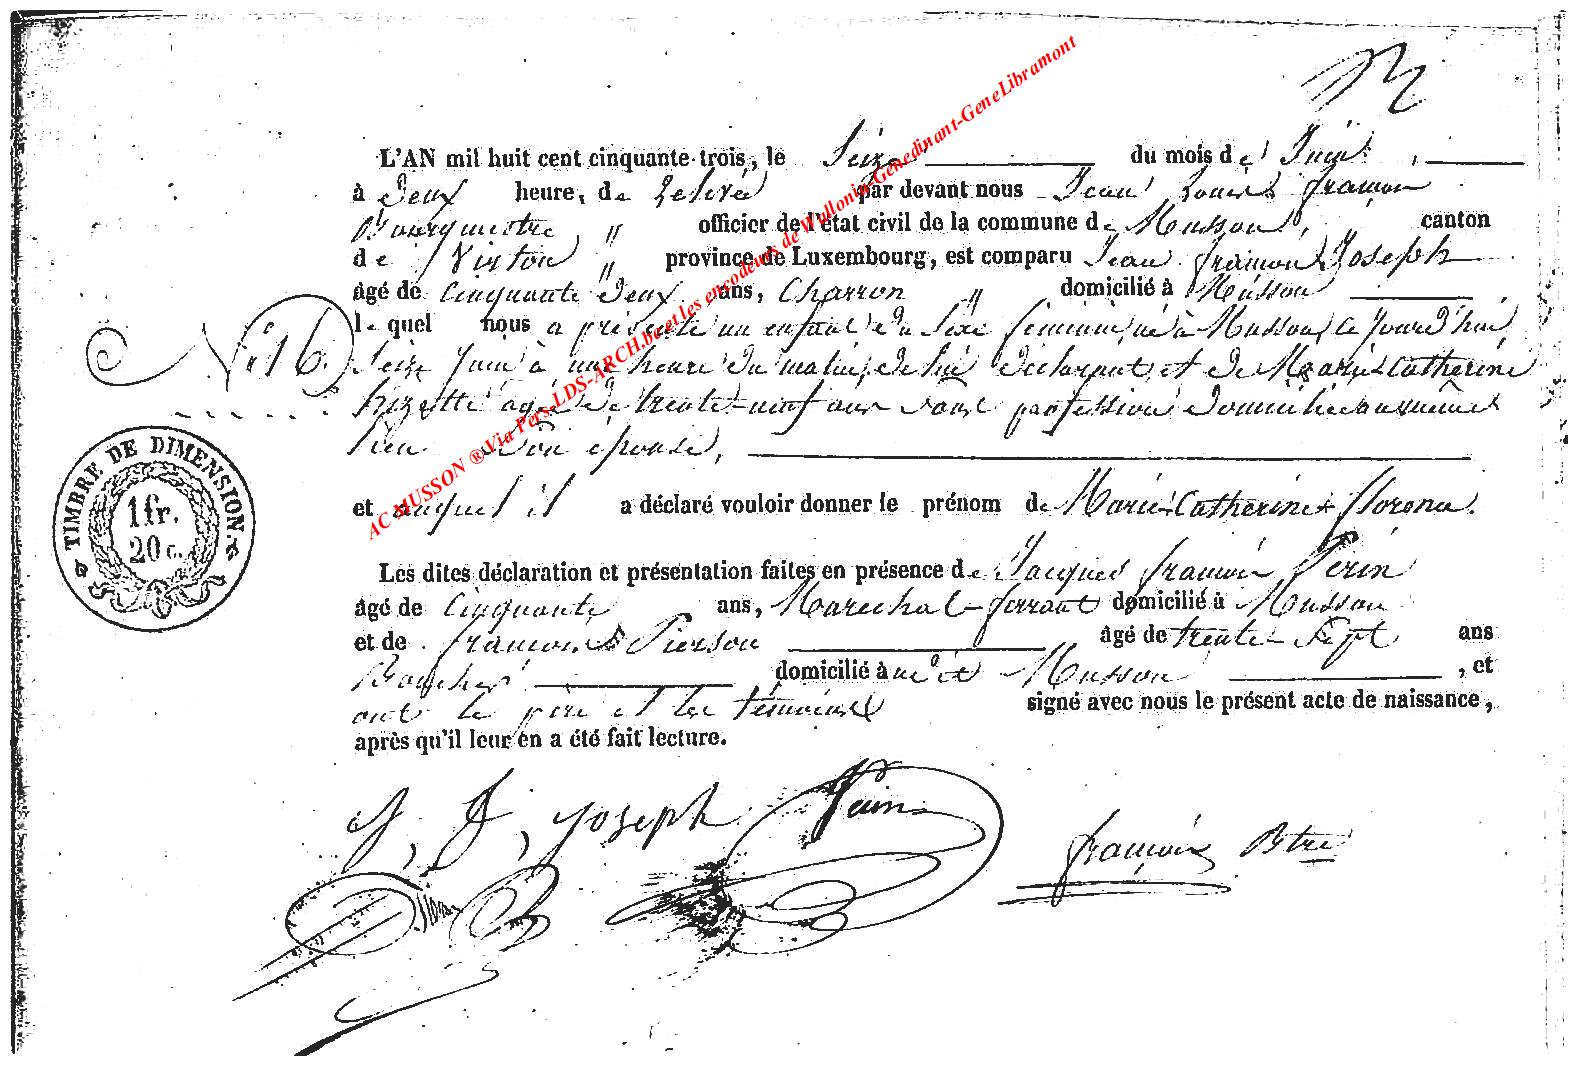 L'AN mil huit cent cinquante-trois, le Seize du mois de Juin,
à Deux heure, de Relevée par devant nous Jean Louis françois
Bourgmestre officier de l'état civil de la commune de Musson, canton
de Virton province de Luxembourg, est comparu Jean françois Joseph
âgé de Cinquante Deux ans, Charron domicilié à Musson
le quel nous a présenté un enfant du Sexe féminin, né à Musson, le Jourd'hui
N° 16.
Seize Juin à une heure du matin, de lui déclarant et de Marie Catherine
âgé de trente-neuf ans sans profession domiciliée au même
lieu Son épouse,
et auquel il a déclaré vouloir donner le prénom de Marie Catherine
TIMBRE DE DIMENSION.
1 fr.
20 c.
Les dites déclaration et présentation faites en présence de Jacques françois Perin
âgé de Cinquante ans, Marechal-ferrant domicilié à Musson
et de françois Pierson âgé de trente Sept ans
Boucher domicilié à Musson, et
ont le père et les témoins signé avec nous le présent acte de naissance,
après qu'il leur en a été fait lecture.
J, F, Joseph Perin
françois Btre
AC MUSSON ® Via Pers-LDS-ARCH.be et les encodeurs de Wallonia-Genedinant-GeneLibramont